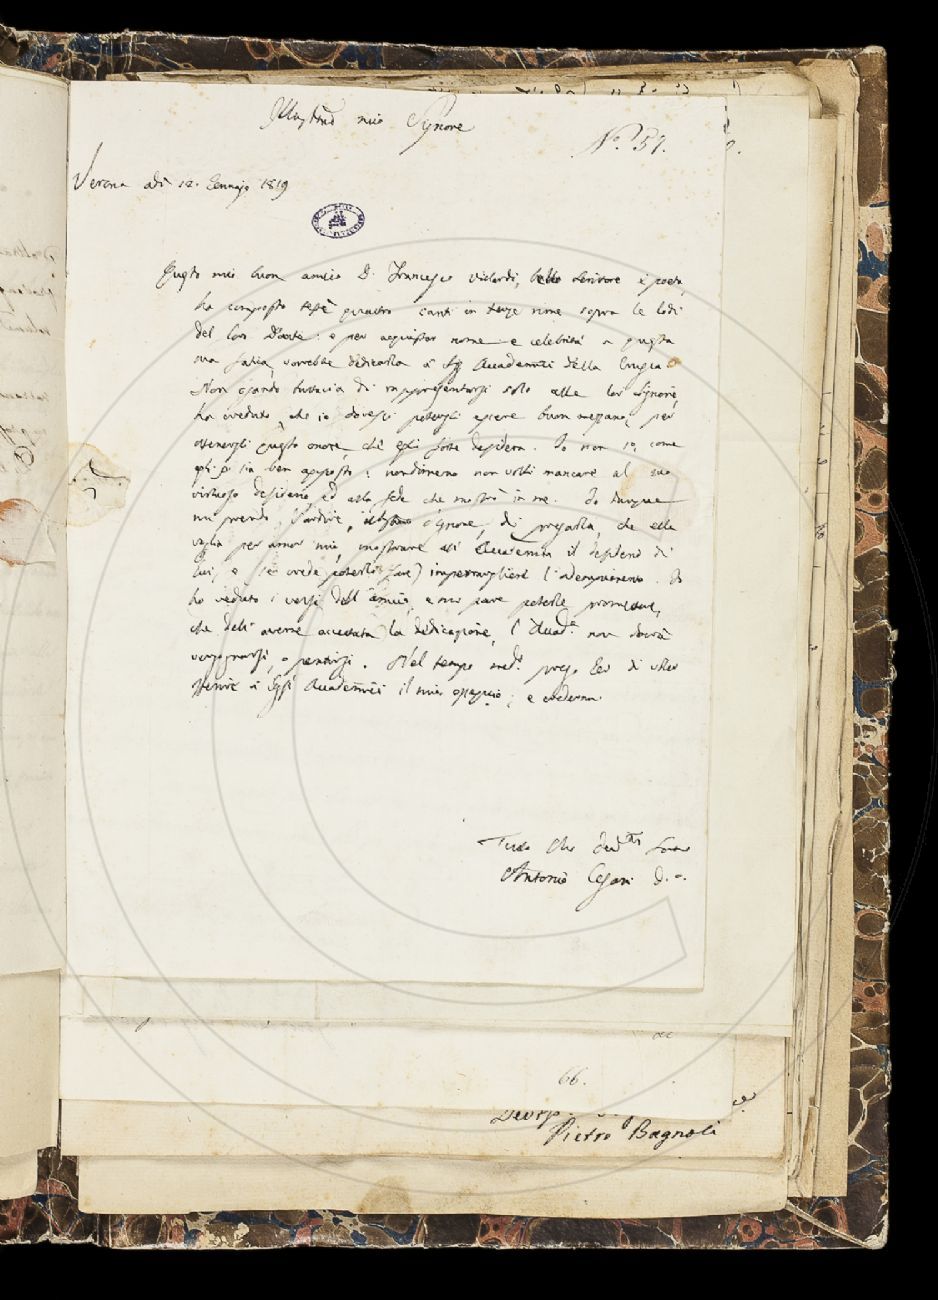 mio Signore
N.º 57.
Verona adì 12. Gennajo 1819
Questo mio buon amico D. Francesco Villardi, bello scrittore e poeta,
ha composto testè quattro canti in terza rima sopra le lodi
del Dante: e per acquistar nome e celebrità a questa
sua fatica, vorrebbe dedicarla a Sigg. Accademici della Crusca.
Non osando tuttavia di rappresentarsi solo alle lor Signorie,
ha creduto, che io dovessi potergli essere buon mezzano, per
ottenergli questo onore, ch'egli forte desidera. Io non so, come
egli si sia ben apposto: nondimeno non volli mancare al suo
virtuoso desiderio ed alla fede che mostrò in me. Io dunque
mi prendo l'ardire, Signore, di pregarla, che ella
voglia per amor mio, mostrare all' Accademia il desiderio di
lui, e (se crede poterlo fare) impetrargliene l'adempimento. Io
ho veduto i versi dell'amico, e mi pare poterle promettere,
che dell' averne accettata la dedicazione, l' Accad.ª non dovrà
vergognarsi, o pentirsi. Nel tempo med.º prego Lei di
offerire a Sigg.ri Accademici il mio ossequio; e credermi
Tutto Suo
Antonio Cesari D. O.
66.
Pietro Bagnoli